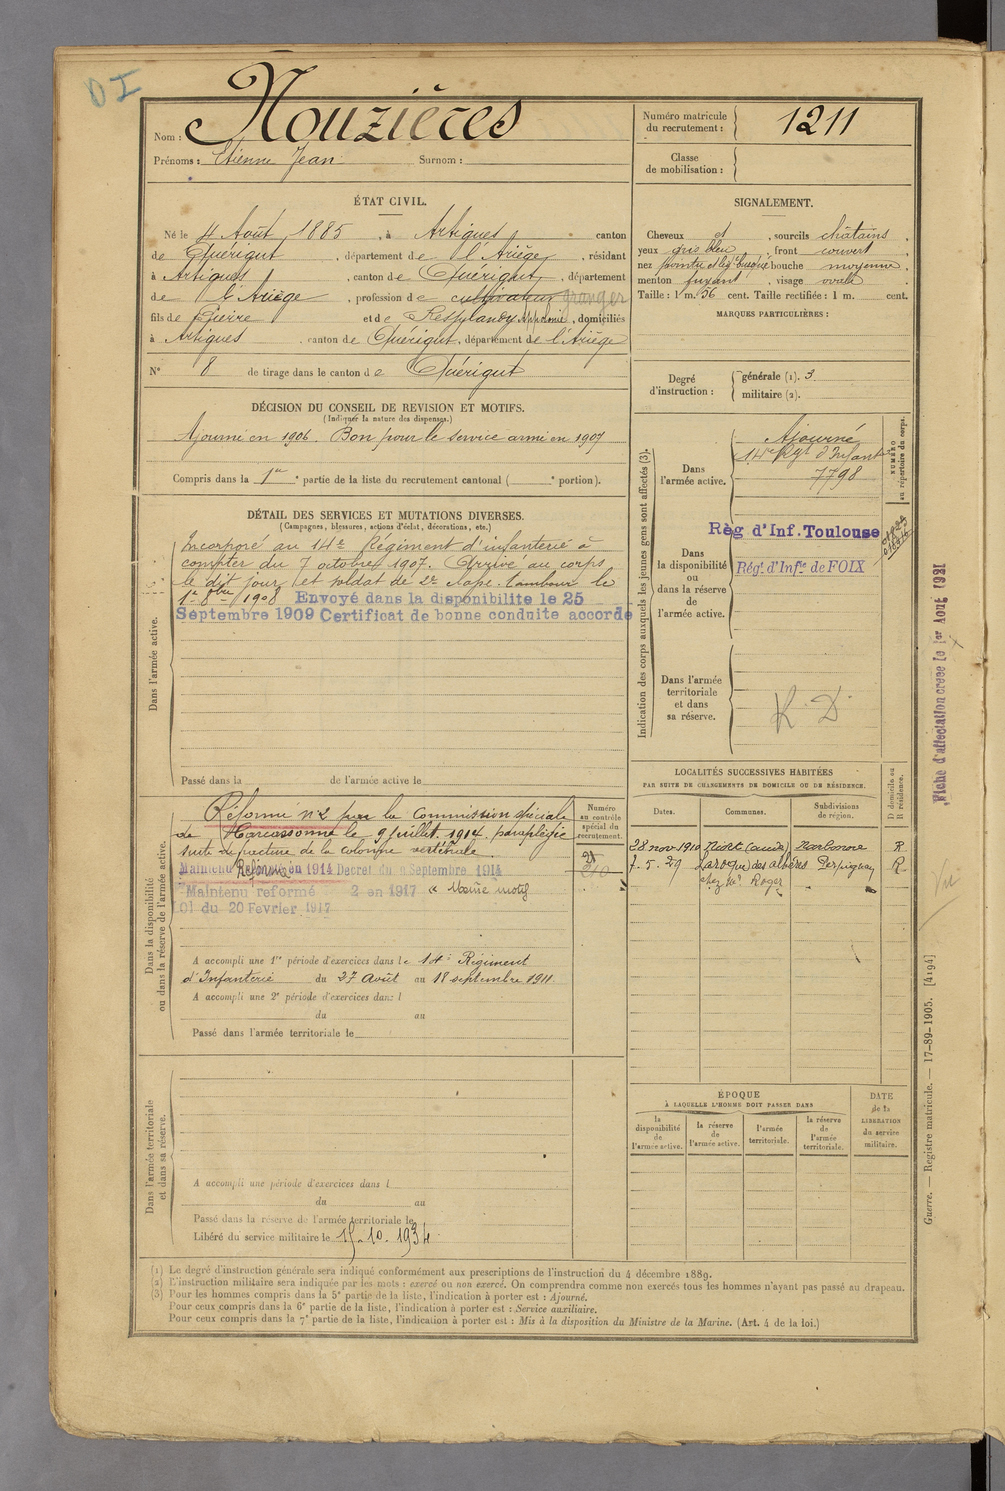 DI
Nom : Nouzières
Prénoms : Etienne Jean Surnom :
Numéro matricule du recrutement : 1211
Classe de mobilisation :
ÉTAT CIVIL.
Né le 4 Août 1885, à Artigues canton
de Quérigut, département de l'Ariège, résidant
à Artigues, canton de Quérigut, département
de l'Ariège, profession de cultivateur
fils de Pierre et de Resplandy Appolonie, domiciliés
à Artigues canton de Quérigut, département de l'Ariège
N° 8 de tirage dans le canton de Quérigut
SIGNALEMENT.
Cheveux et, sourcils châtains,
yeux gris bleu, front couvert,
nez pointu et légt busqué bouche moyenne,
menton fuyant, visage ovale
Taille : 1 m. 56 cent. Taille rectifiée : 1 m. cent.
MARQUES PARTICULIÈRES :
Degré d'instruction : générale (1). 3
militaire (2).
DÉCISION DU CONSEIL DE REVISION ET MOTIFS.
(Indiquer la nature des dispenses.)
Ajourné en 1906. Bon pour le service armé en 1907
Compris dans la 1re partie de la liste du recrutement cantonal ( e portion).
DÉTAIL DES SERVICES ET MUTATIONS DIVERSES.
(Campagnes, blessures, actions d'éclat, décorations, etc.)
Dans l'armée active.
Incorporé au 14e Régiment d'infanterie à
compter du 7 octobre 1907. Arrivé au corps
le dit jour et soldat de 2e classe. tambour le
1er 8bre 1908 Envoyé dans la disponibilite le 25
Septembre 1909 Certificat de bonne conduite accordé
Passé dans la de l'armée active le
Indication des corps auxquels les jeunes gens sont affectés (3).
NUMÉRO au répertoire du corps.
Dans l'armée active.
Ajourné
14e Rgt d'Infanterie
7798
Dans la disponibilité ou dans la réserve de l'armée active.
Règ d'Inf. Toulouse
Régt d'Infie de FOIX
Dans l'armée territoriale et dans sa réserve.
R. D
Fiche d'affectation créée le 1er Août 1921
Dans la disponibilité ou dans la réserve de l'armée active.
Numéro au contrôle spécial du recrutement.
Réformé n°2 par la Commission spéciale
de Carcassonne le 9 Juillet 1914. paraplégie
suite de fracture de la colonne vertébrale
Maintenu Réformé en 1914 Decret du 9 Septembre 1914
Maintenu reformé 2 en 1917 " Même motif
Loi du 20 Fevrier 1917
A accompli une 1re période d'exercices dans le 14e Régiment
d'Infanterie du 27 Août au 18 septembre 1911
A accompli une 2e période d'exercices dans l
du au
Passé dans l'armée territoriale le
LOCALITÉS SUCCESSIVES HABITÉES
PAR SUITE DE CHANGEMENTS DE DOMICILE OU DE RÉSIDENCE.
Dates. Communes. Subdivisions de région. D domicile ou R résidence.
28 nov 1910 Niort (aude) Narbonne R
7. 5. 29 Laroque des albères Perpignan R
chez Mr Roger
Dans l'armée territoriale et dans sa réserve.
A accompli une période d'exercices dans l
du au
Passé dans la réserve de l'armée territoriale le
Libéré du service militaire le 15.10.1934
ÉPOQUE
À LAQUELLE L'HOMME DOIT PASSER DANS
la disponibilité de l'armée active. la réserve de l'armée active. l'armée territoriale. la réserve de l'armée territoriale.
DATE de la LIBÉRATION du service militaire.
Guerre. — Registre matricule. — 17-89-1905. [4194]
(1) Le degré d'instruction générale sera indiqué conformément aux prescriptions de l'instruction du 4 décembre 1889.
(2) L'instruction militaire sera indiquée par les mots : exercé ou non exercé. On comprendra comme non exercés tous les hommes n'ayant pas passé au drapeau.
(3) Pour les hommes compris dans la 5e partie de la liste, l'indication à porter est : Ajourné.
Pour ceux compris dans la 6e partie de la liste, l'indication à porter est : Service auxiliaire.
Pour ceux compris dans la 7e partie de la liste, l'indication à porter est : Mis à la disposition du Ministre de la Marine. (Art. 4 de la loi.)